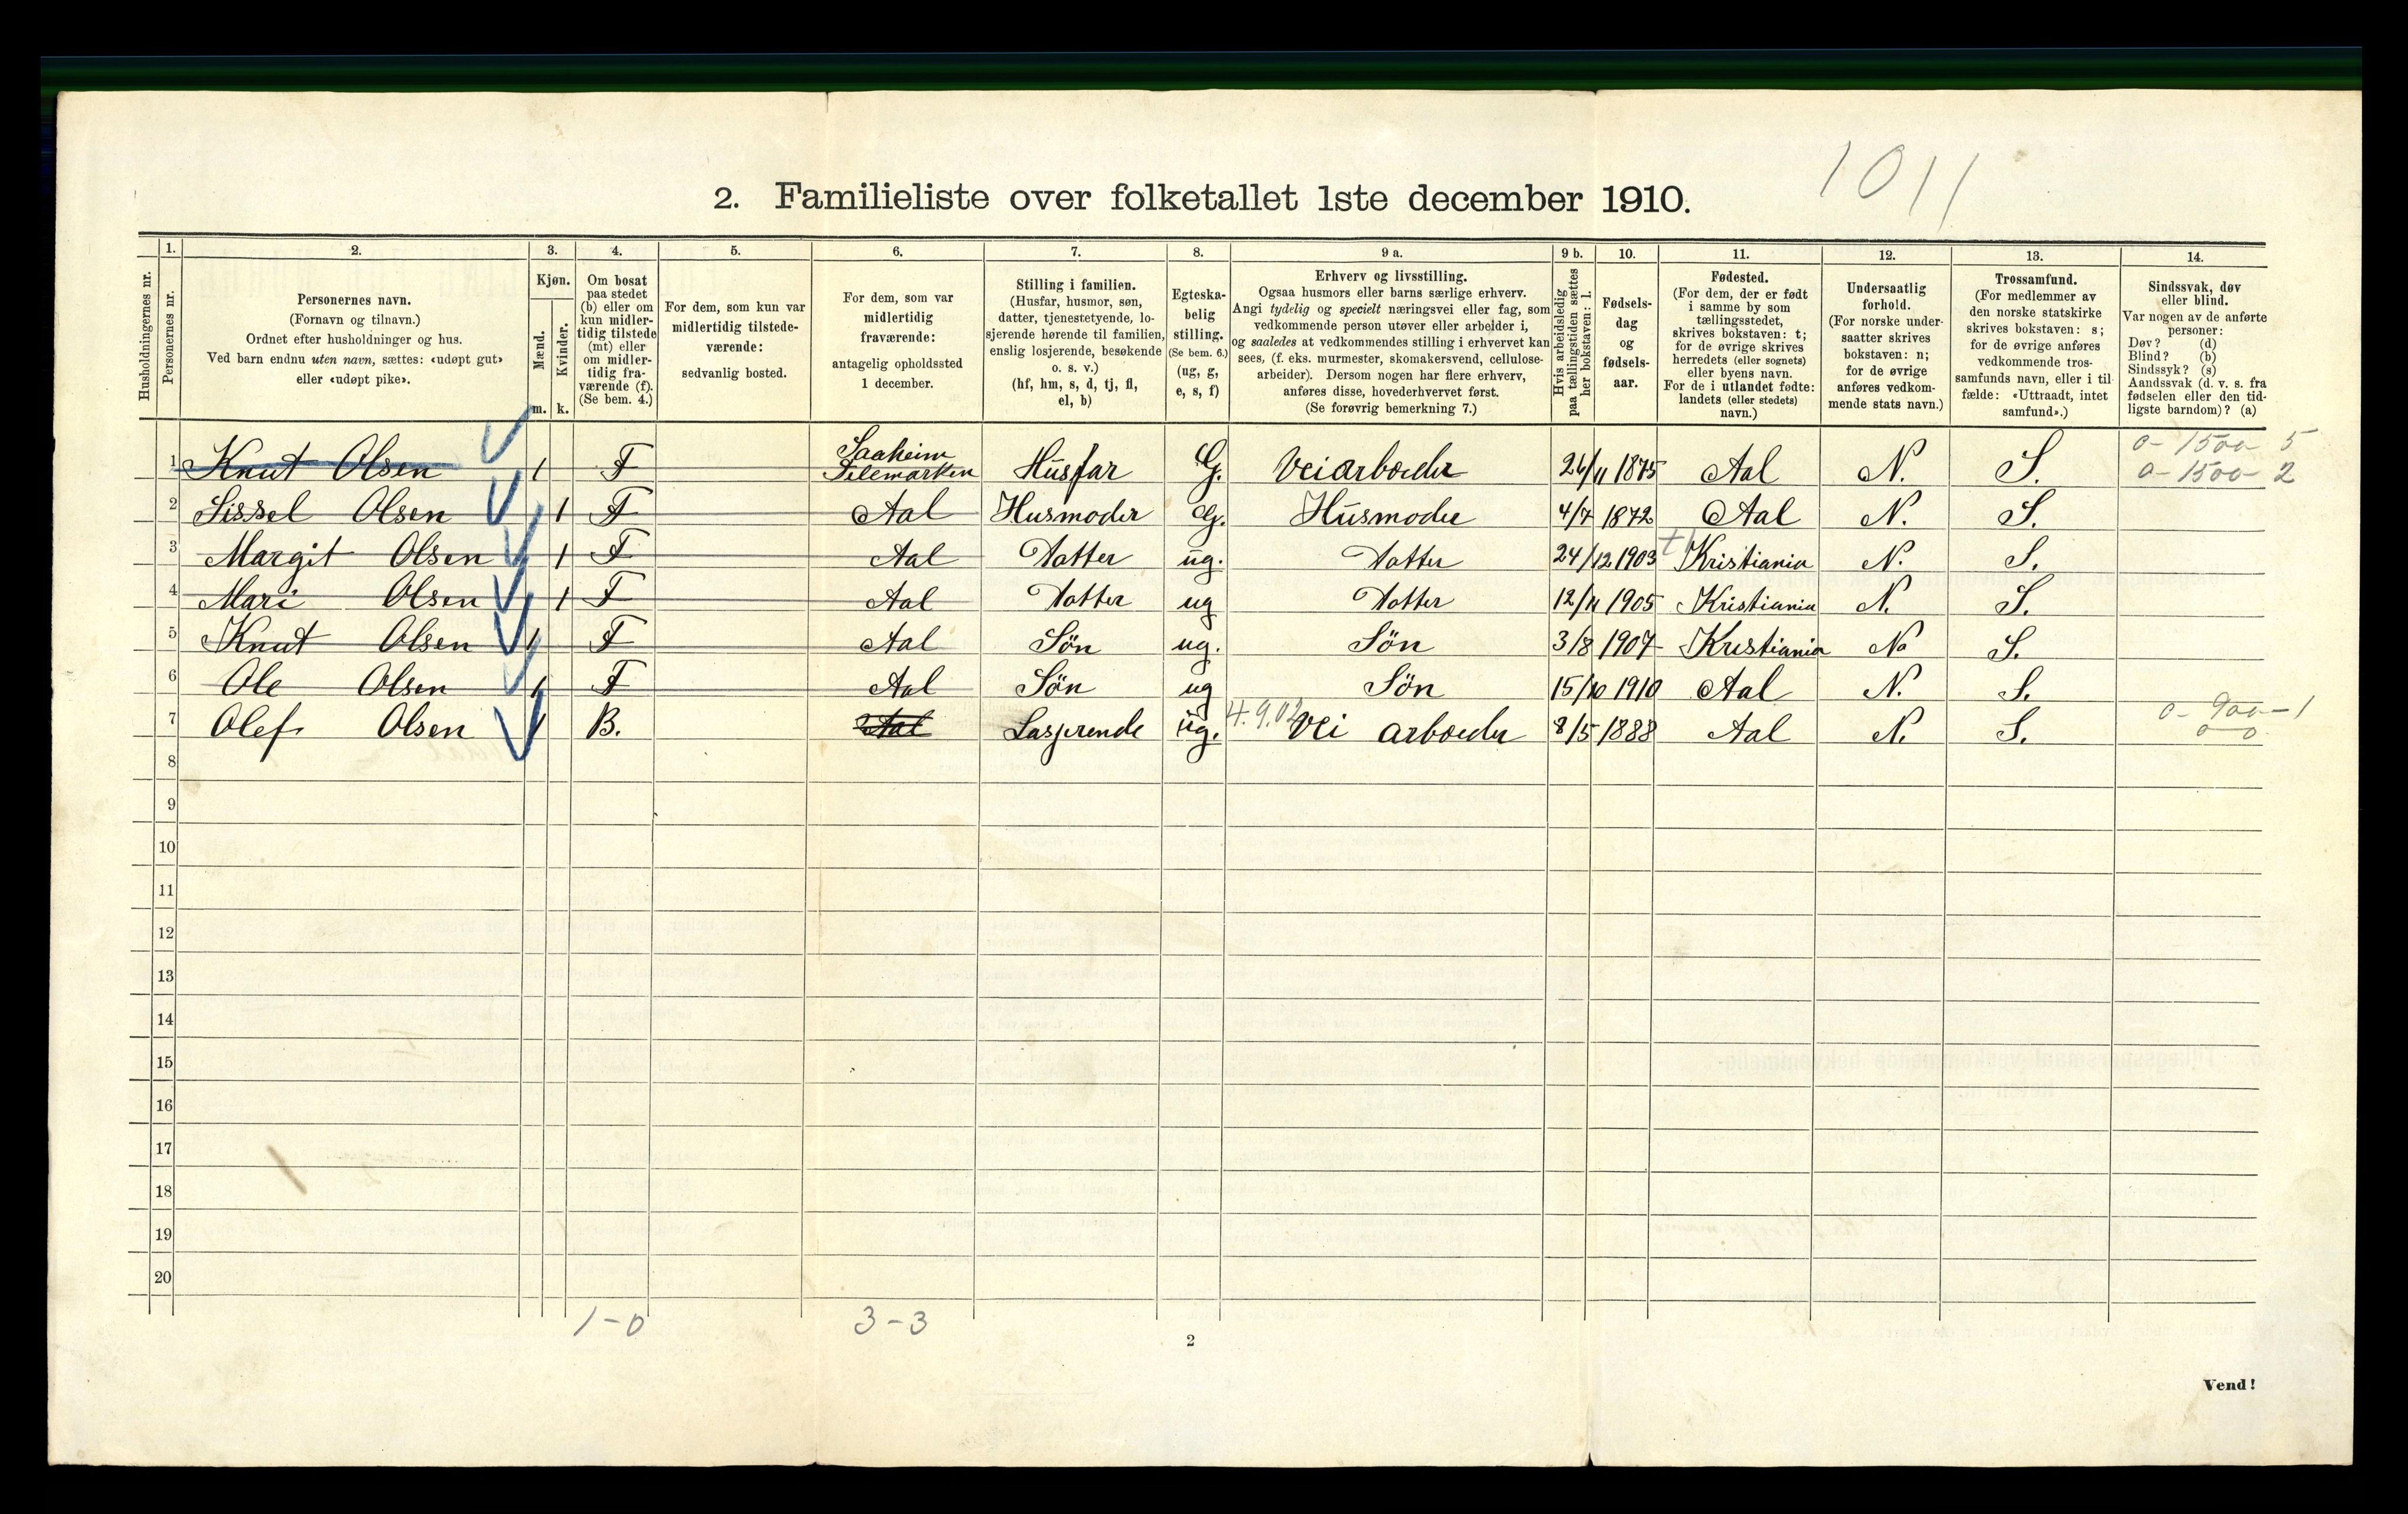 1011
2. Familieliste over folketallet 1ste december 1910.
Husholdningernes nr.
1.
Personernes nr.
2.
Personernes navn.
(Fornavn og tilnavn.)
Ordnet efter husholdninger og hus.
Ved barn endnu uten navn, sættes: «udøpt gut»
eller «udøpt pike».
3.
Kjøn.
Mænd.
Kvinder.
m. k.
4.
Om bosat
paa stedet
(b) eller om
kun midler-
tidig tilstede
(mt) eller
om midler-
tidig fra-
værende (f).
(Se bem. 4.)
5.
For dem, som kun var
midlertidig tilstede-
værende:
sedvanlig bosted.
6.
For dem, som var
midlertidig
fraværende:
antagelig opholdssted
1 december.
7.
Stilling i familien.
(Husfar, husmor, søn,
datter, tjenestetyende, lo-
sjerende hørende til familien,
enslig losjerende, besøkende
o. s. v.)
(hf, hm, s, d, tj, fl,
el, b)
8.
Egteska-
belig
stilling.
(Se bem. 6.)
(ug, g,
e, s, f)
9 a.
Erhverv og livsstilling.
Ogsaa husmors eller barns særlige erhverv.
Angi tydelig og specielt næringsvei eller fag, som
vedkommende person utøver eller arbeider i,
og saaledes at vedkommendes stilling i erhvervet kan
sees, (f. eks. murmester, skomakersvend, cellulose-
arbeider). Dersom nogen har flere erhverv,
anføres disse, hovederhvervet først.
(Se forøvrig bemerkning 7.)
9 b.
Hvis arbeidsledig
paa tællingstiden sættes
her bokstaven: l.
10.
Fødsels-
dag
og
fødsels-
aar.
11.
Fødested.
(For dem, der er født
i samme by som
tællingsstedet,
skrives bokstaven: t;
for de øvrige skrives
herredets (eller sognets)
eller byens navn.
For de i utlandet fødte:
landets (eller stedets)
navn.)
12.
Undersaatlig
forhold.
(For norske under-
saatter skrives
bokstaven: n;
for de øvrige
anføres vedkom-
mende stats navn.)
13.
Trossamfund.
(For medlemmer av
den norske statskirke
skrives bokstaven: s;
for de øvrige anføres
vedkommende tros-
samfunds navn, eller i til-
fælde: «Uttraadt, intet
samfund».)
14.
Sindssvak, døv
eller blind.
Var nogen av de anførte
personer:
Døv? (d)
Blind? (b)
Sindssyk? (s)
Aandssvak (d. v. s. fra
fødselen eller den tid-
ligste barndom)? (a)
1 Knut Olsen 1 F Saaheim Telemarken Husfar G. Veiarbeider 26/11 1875 Aal N. S. 0-1500-5 0-1500-2
2 Sissel Olsen 1 F Aal Husmoder G. Husmoder 4/7 1872 Aal N. S.
3 Margit Olsen 1 F Aal Datter ug. Datter 24/12 1903 t Kristiania N. S.
4 Mari Olsen 1 F Aal Datter ug Datter 12/11 1905 Kristiania N. S.
5 Knut Olsen 1 F Aal Sön ug. Sön 3/8 1907 Kristiania N. S.
6 Ole Olsen 1 F Aal Sön ug Sön 15/10 1910 Aal N. S.
7 Olef Olsen 1 B. Aal Losjerende ug. 4.9.02 Vei arbeider 8/5 1888 Aal N. S. 0-900-1 0 0
8
9
10
11
12
13
14
15
16
17
18
19
20
1-0 3-3
2
Vend!